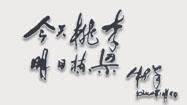 今天桃李
明日栋梁